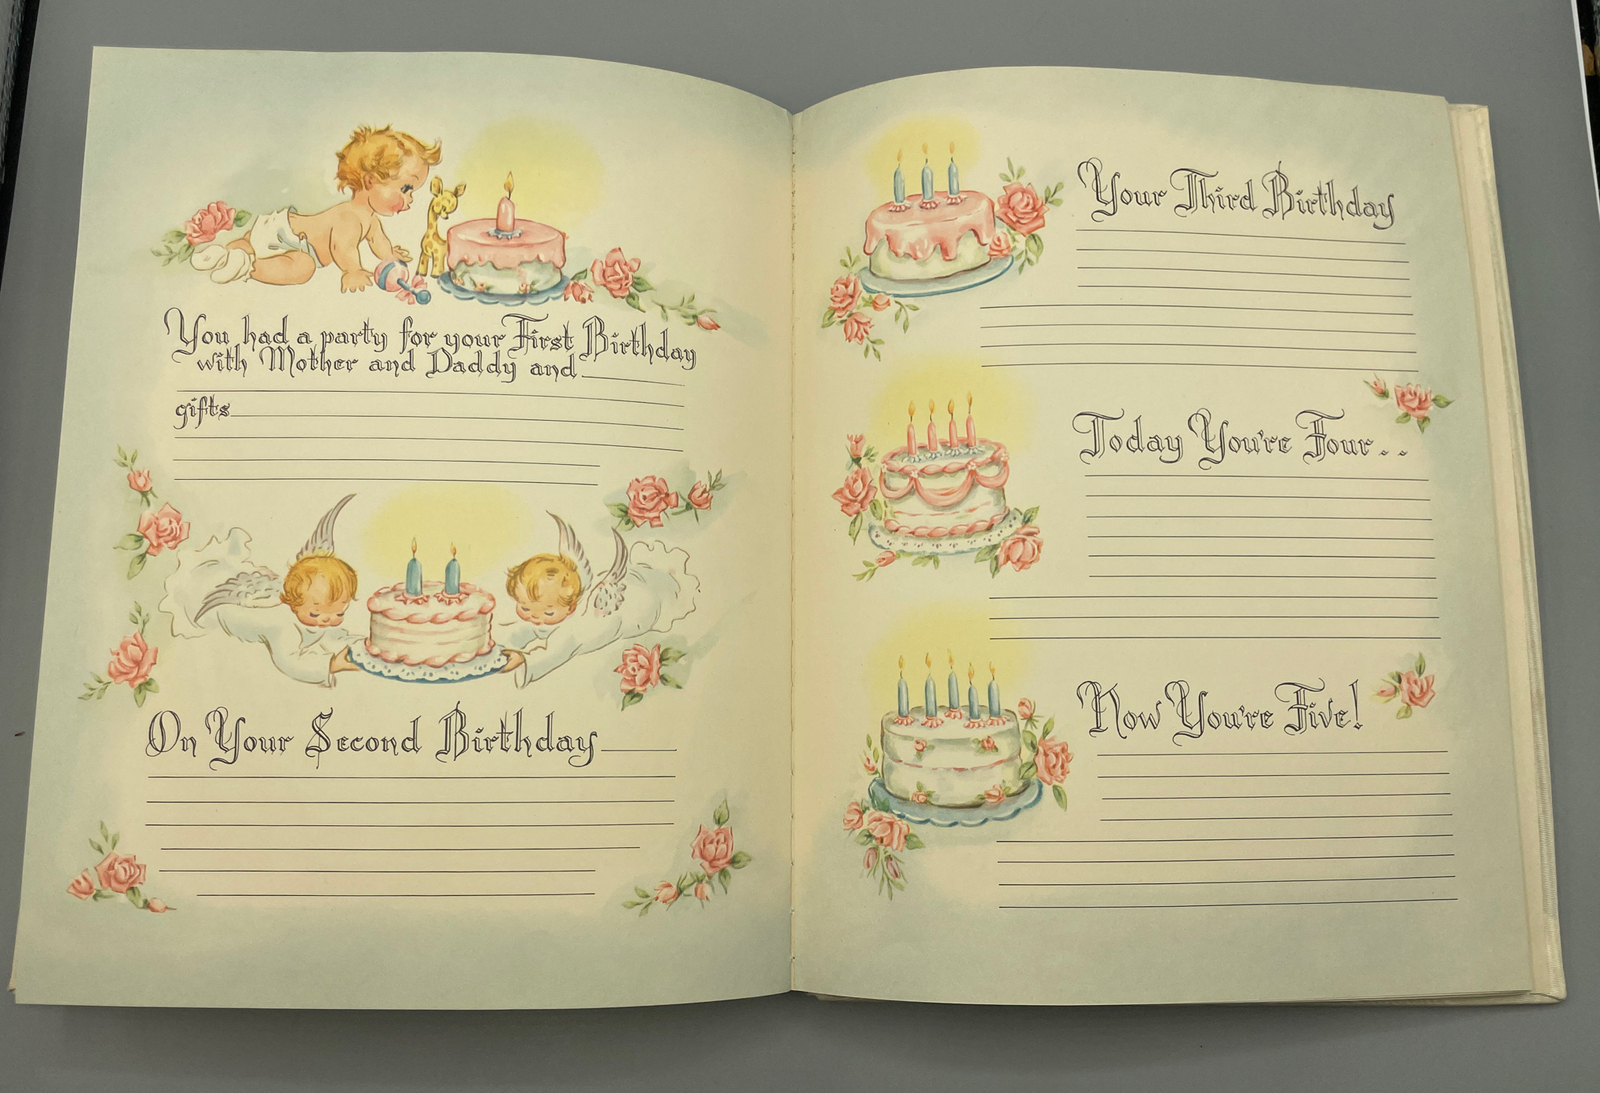 You had a party for your First Birthday
with Mother and Daddy and
gifts
On Your Second Birthday
Your Third Birthday
Today You're Four..
Now You're Five!